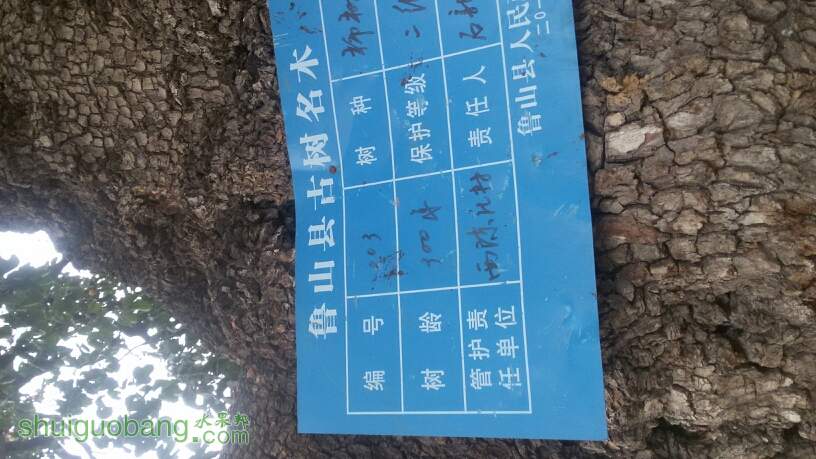 鲁山县古树名木
编号 203 树种 柳
树龄 300年 保护等级 二级
管护责任单位 西陈孔村 责任人 石
鲁山县人民
二0一
水果邦
shuiguobang.com